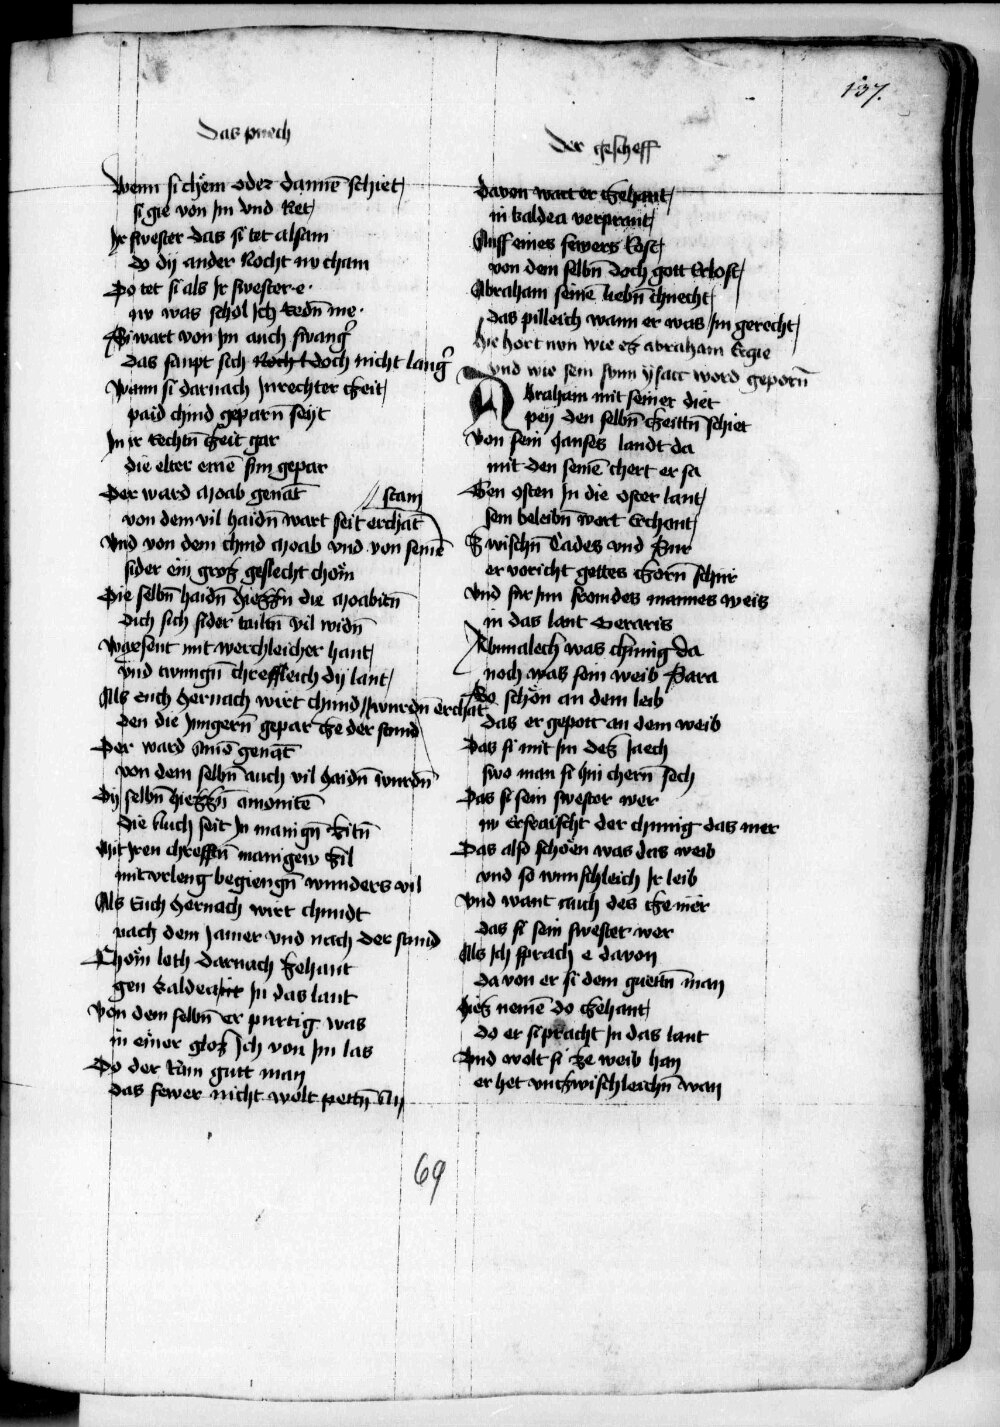 137.
Das puech
Der gescheff
Wenn si chem oder dannē schiet
si gie von Im vnd Ret
Ir swester das si tet alsam
do dij ander Nocht nv cham
Do tet si als Ir swester e
nv was schol Ich redn̄ me
Si wart von Im auch swang̉
das saupt sich Nocht doch nicht lang̉
Wann si darnach Inrechter czeit
paid chind geparn seyt
In ir rechtn̄ czeit gar
die elter einē sun gepar
Der ward Moab genāt
von dem vil haidn̄ wart seit erchāt
stam
Vnd von dem chind Moab vnd von seinē
sider ein grosz geslecht chom
Die selbn̄ haidn̄ hiezzn die Moabitn̄
Dich sich sider tailtn̄ vil widn̄
Waxsent mit werchleicher hant
vnd twungn̄ chrefftleich dij lant
Als euch hernach wirt chund wurdn̄ erchāt
den die Jungern̄ gepar cze der stund
Der ward Amō genāt
von dem selbn̄ auch vil haidn̄ wurdn̄
Dij selbn̄ hiezzn̄ amonitē
die auch seit In manign̄ zitn̄
Mit Iren chrefftn̄ manigew zil
mit vrleug begiengn̄ wunders vil
Als Euch hernach wirt chundt
nach dem Jamer vnd nach der sund
Chom loth darnach zehant
gen kaldea In das lant
Von dem selbn̄ er purtig was
in einer glosz Ich von Im las
Do der Ram gutt man
das fewer nicht wolt pettn̄ an
Davon wart er czehant
in kaldea verprant
Auff eines fewers Rost
von dem selbn̄ doch gott Erlost
Abraham seinē liebn̄ chnecht
das pilleich wann er was Im gerecht
hie hort nvn wie ez abraham Ergie
vnd wie sein sunn ysaac word geporn̄
Abraham mit seiner diet
pey den selbn̄ czeittn̄ schiet
Von sein hauses landt da
mit den seinē chert er sa
Gen osten In die oster lant
sein beleibn̄ wart Erchant
Zwischn̄ Cades vnd Sur
er voricht gottes czorn̄ schur
Vnd fur Inn fromdes mannes weis
in das lant Geraris
Abimalech was chunig da
noch was sein weib Sara
So schön an dem leib
das er gepott an dem weib
Das si mit Im desz Jaech
swo man si hin chern̄ sech
Das si sein swester wer
nv erfraischt der chunig das mer
Das also schoen was das weib
vnd so wunschleich Ir leib
Vnd want auch des cze mer
das si sein swester wer
Als Ich sprach e davon
da von er si dem guettn̄ man
Hiesz nemē do czehant
do er si pracht In das lant
Vnd wolt si cze weib han
er het vnczwischleichn̄ wan
69